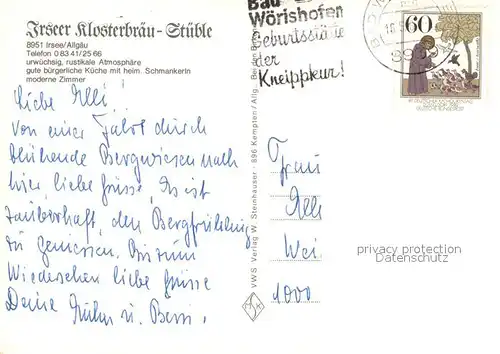 Irseer Klosterbräu-Stüble
8951 Irsee/Allgäu
Telefon 0 83 41/25 66
urwüchsig, rustikale Atmosphäre
gute bürgerliche Küche mit heim. Schmankerln
moderne Zimmer
Liebe Elli!
Von einer Fahrt durch
blühende Bergwiesen nach
hier, liebe Grüsse, Es ist
zauberhaft, den Bergfrühling
zu geniessen. Bis zum
Wiedersehen liebe Grüsse
Deine u.
VWS Verlag W. Steinhauser · 896 Kempten / Allg.
Bad
Wörishofen
Geburtsstätte
der
Kneippkur!
60
Frau
Elli
Wei
1000
privacy protection
Datenschutz